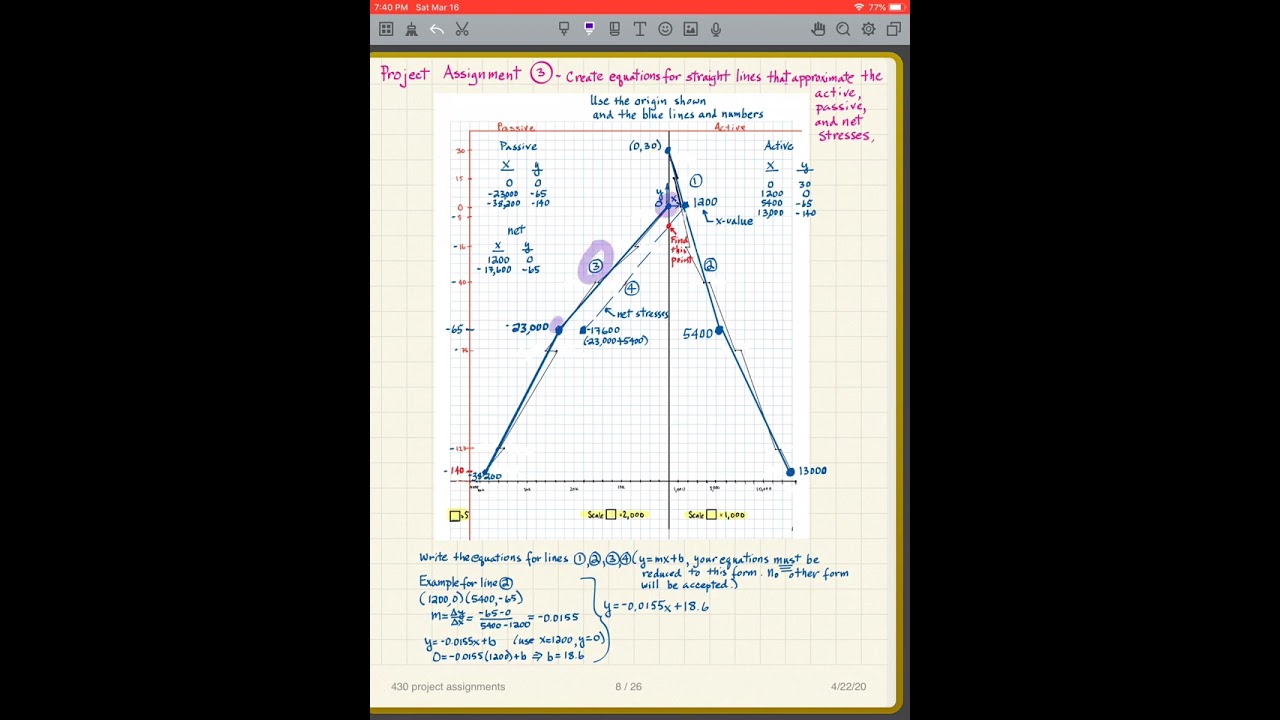 7:40 PM Sat Mar 16
77%
Project Assignment 3 - Create equations for straight lines that approximate the
active,
passive,
and net
stresses,
Use the origin shown
and the blue lines and numbers
Passive
Active
Passive
x y
0 0
-23,000 -65
-38,200 -140
net
x y
1200 0
-17,600 -65
(0,30)
Active
x y
0 30
1200 0
5400 -65
13,000 -140
30
15
0
-5
-16
-40
-65
-140
y
x
0
1
1200
x-value
Find
this
point
2
3
4
net stresses
-23,000
-17600
(-23,000+5400)
5400
-38200
13000
=5
Scale =2,000
Scale =1,000
Write the equations for lines 1,2,3,4 (y=mx+b, your equations must be
reduced to this form. No other form
will be accepted.)
Example for line 2
(1200,0)(5400,-65)
m=Δy/Δx= -65-0/5400-1200 = -0.0155
y=-0.0155x+b (use x=1200, y=0)
0=-0.0155(1200)+b ⇒ b=18.6
y=-0.0155x+18.6
430 project assignments
8 / 26
4/22/20